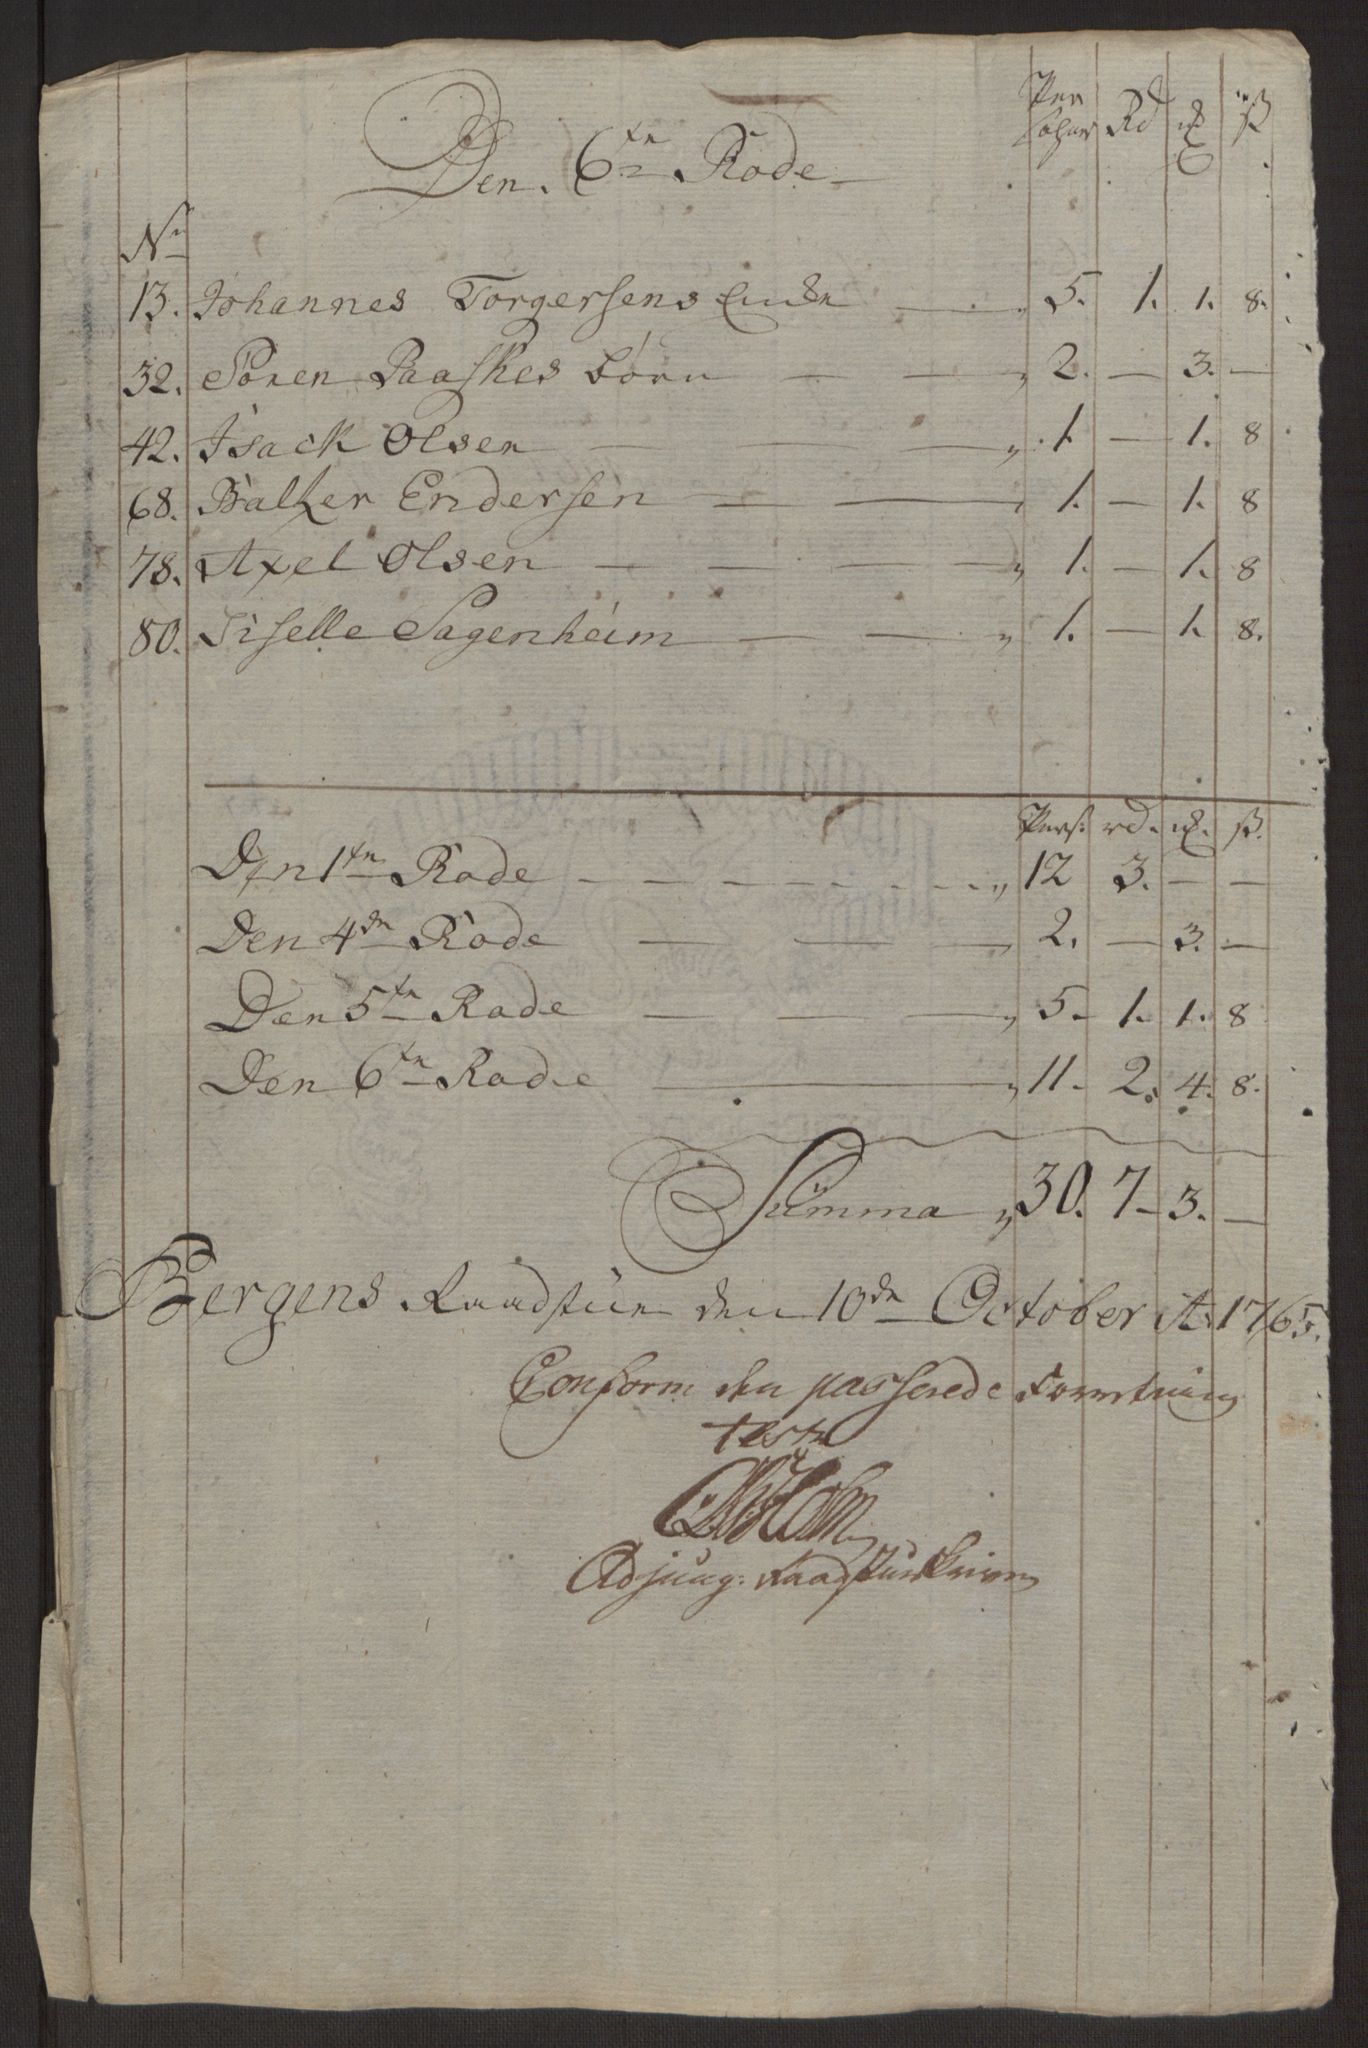 Per
sohner Rd ß
Den. 6te Rode
No
13. Johannes Torgersens Encke " 5. 1. 1. 8.
32. Sören Paaskes börn " 2. — 3. —
42. Isack Olsen " 1. — 1. 8
68. Baltzer Endersen 1. — 1. 8
78. Axel Olsen " 1. — 1. 8
80. Siselle Sagenheim " 1. — 1. 8.
Pers: rd. ß.
Den 1te Rode " 12 3. — —
Den 4de Rode 2. — 3. —
Den 5te Rode " 5. 1. 1. 8
Den 6te Rode " 11. 2. 4. 8.
Summa " 30. 7 — 3. —
Bergens Raadstue den 10de October A. 1765.
Conform den passerede Forretning
teste
Holm
Adjung: Raadstueskriver